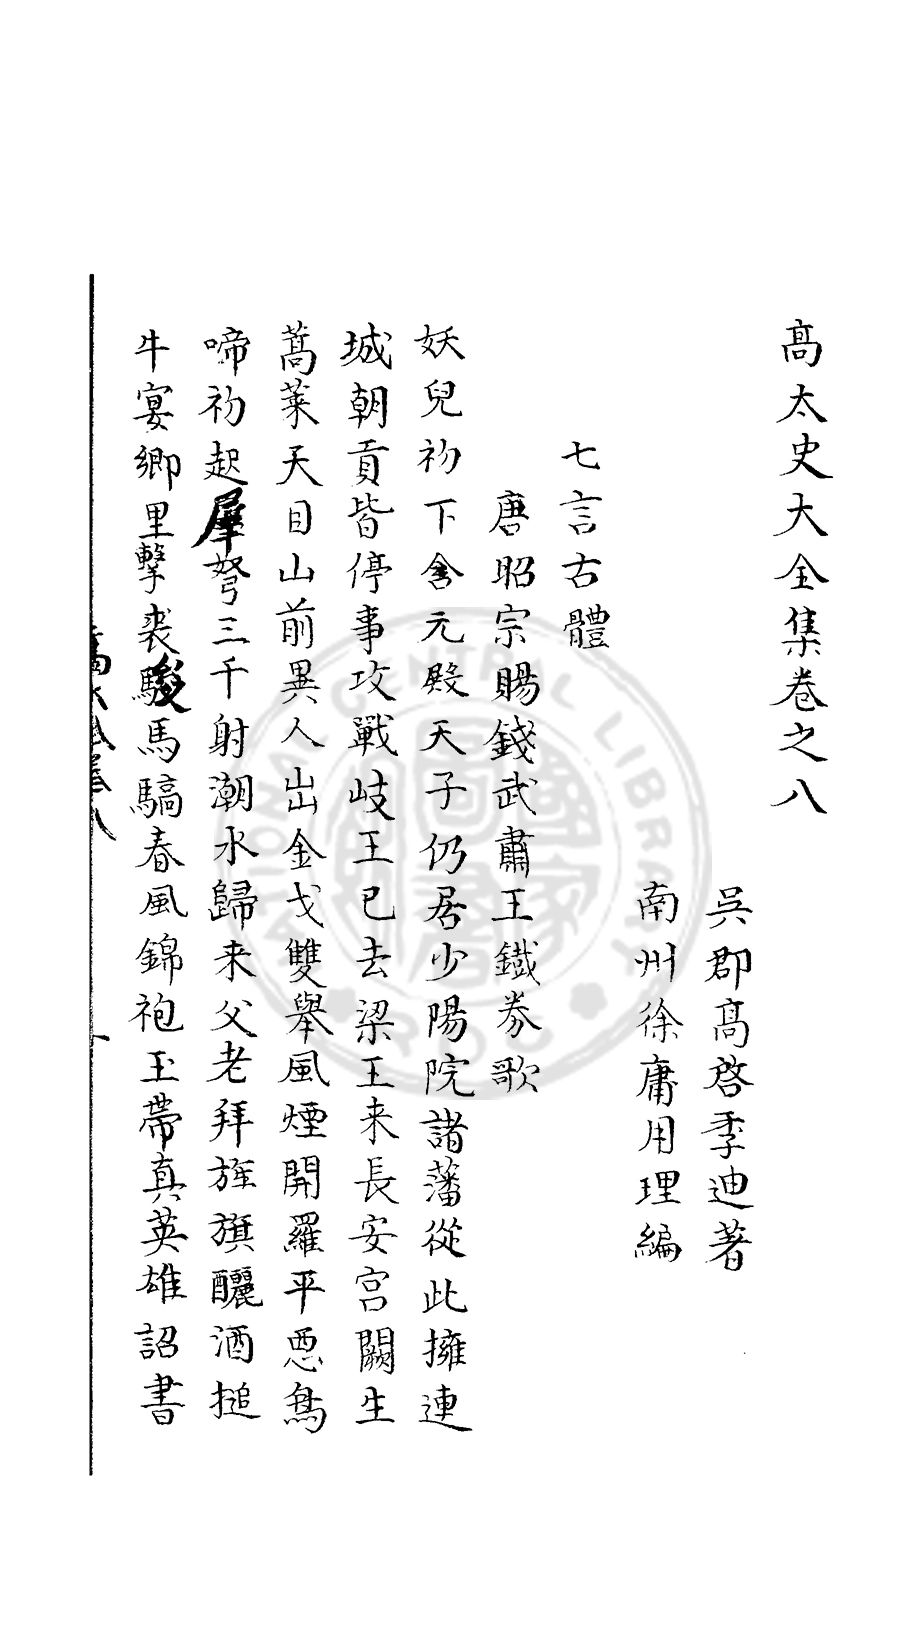 高太史大全集卷之八
吳郡高啓季迪著
南州徐庸用理編
七言古體
唐昭宗賜錢武肅王鐵券歌
妖兒初下含元殿天子仍居少陽院諸藩從此擁連
城朝貢皆停事攻戰岐王已去梁王来長安宮闕生
蒿萊天目山前異人出金戈雙舉風煙開羅平惡鳥
啼初起犀弩三千射潮水歸来父老拜旌旗釃酒搥
牛宴鄉里擊裘駿馬驕春風錦袍玉帶真英雄詔書
NATIONAL CENTRAL LIBRARY